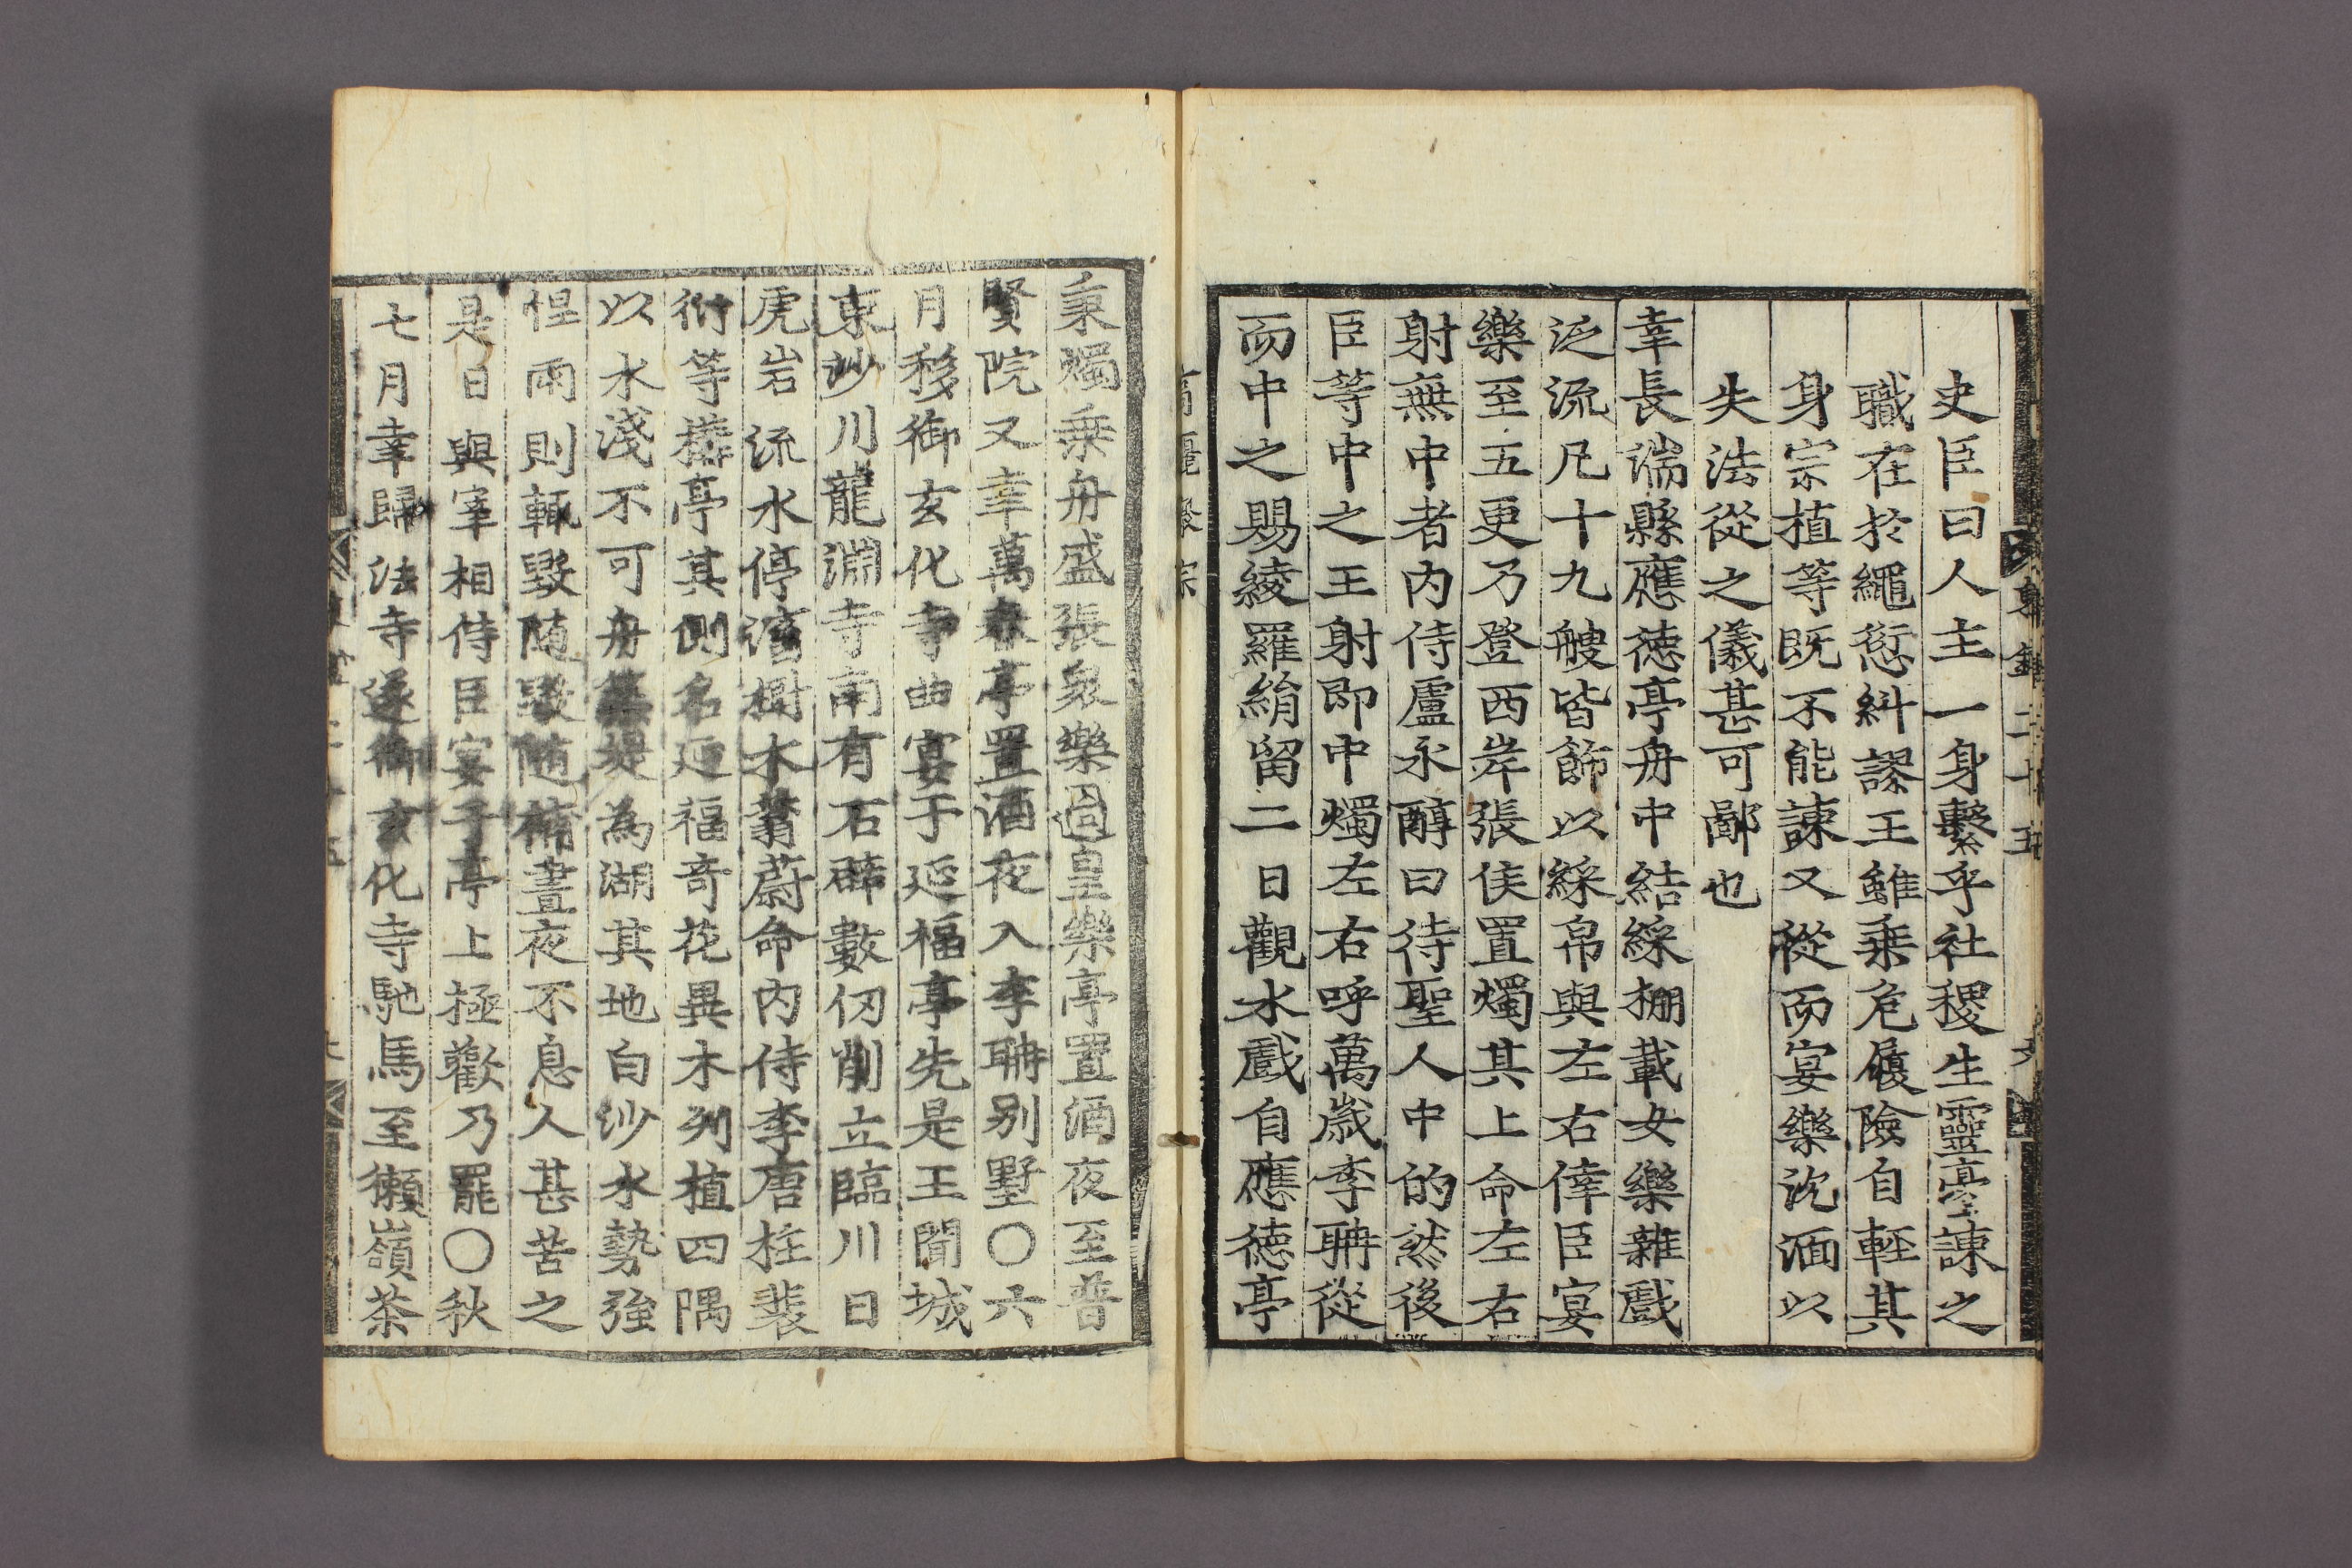 史臣曰人主一身繫乎社稷生靈臺諫之
職在於繩愆糾謬王雖乘危履險自輕其
身宗植等既不能諫又從而宴樂沈湎以
失法從之儀甚可鄙也
幸長湍縣應德亭舟中結綵棚載女樂雜戱
泛流凡十九艘皆飾以綵帛與左右倖臣宴
樂至五更乃登西岸張侯置燭其上命左右
射無中者內侍盧永醇曰待聖人中的然後
臣等中之王射即中燭左右呼萬歲李聃從
而中之賜綾羅絹留二日觀水戱自應德亭
秉燭乘舟盛張衆樂過皇樂亭置酒夜至普
賢院又幸萬春亭置酒夜入李聃別墅○六
月移御玄化寺曲宴于延福亭先是王聞城
東沙川龍淵寺南有石壁數仞削立臨川曰
虎岩流水停滀樹木蓊蔚命內侍李唐柱裴
衍等構亭其側名延福奇花異木列植四隅
以水淺不可舟築堤為湖其地白沙水勢強
悍雨則輒毀隨毀隨補晝夜不息人甚苦之
是日與宰相侍臣宴于亭上極歡乃罷○秋
七月幸歸法寺遂御玄化寺馳馬至獺嶺茶